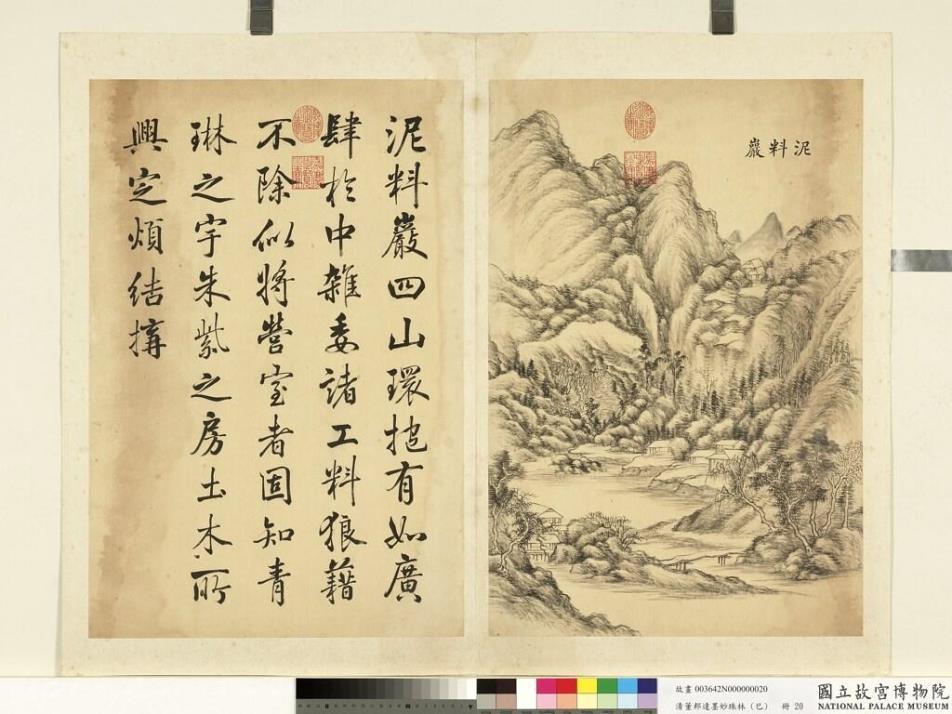 泥料巖
泥料巖四山環抱有如廣
肆於中雜委諸工料狼藉
不除似將營室者固知青
琳之宇朱紫之房土木所
興定煩結搆
故畫 003642N000000020
清董邦達墨妙珠林（巳） 冊 20
國立故宮博物院
NATIONAL PALACE MUSEUM